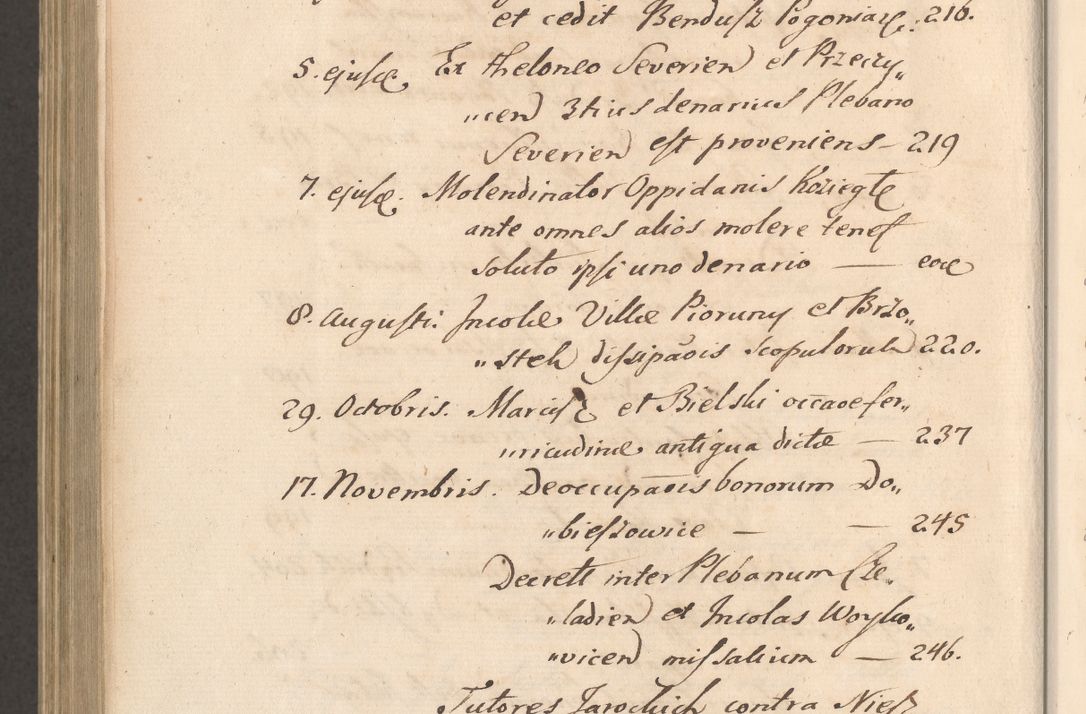 et cedit Bendusz Pogoniaze. 216.
5. ejusde. Ex theloneo Severien et Przeczy„
„cen 3tius denarius Plebano
Severien est proveniens – 219
7. ejusde. Molendinator Oppidanis Koziegłe
ante omnes alios molere tenet
soluto ipsi uno denario — eode
8. Augusti: Incolæ Villæ Pioruny et Brzo„
„steh dissipãois scopuloruh 220.
29. Octobris. Mariusz et Bielski
antiqua dictæ — 237
17. Novembris. Deoccupãois bonorum Do„
„bieszowice — — 245
Decreti inter Plebanum Cze„
„ladien et Incolas Woyko„
„vicen missalium — 246.
Tutores contra Niesz